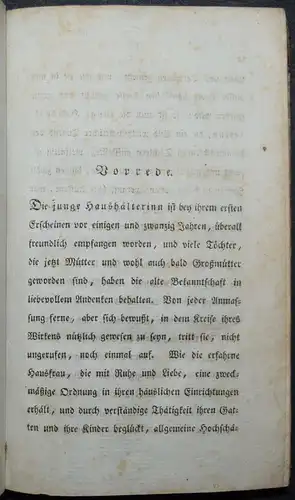 Vorrede.
Die junge Haushälterinn ist bey ihrem ersten
Erscheinen vor einigen und zwanzig Jahren, überall
freundlich empfangen worden, und viele Töchter,
die jetzt Mütter und wohl auch bald Großmütter
geworden sind, haben die alte Bekanntschaft in
liebevollem Andenken behalten. Von jeder Anmas-
sung ferne, aber sich bewußt, in dem Kreise ihres
Wirkens nützlich gewesen zu seyn, tritt sie, nicht
ungerufen, noch einmal auf. Wie die erfahrne
Hausfrau, die mit Ruhe und Liebe, eine zweck-
mäßige Ordnung in ihren häuslichen Einrichtungen
erhält, und durch verständige Thätigkeit ihren Gat-
ten und ihre Kinder beglückt, allgemeine Hochschä-